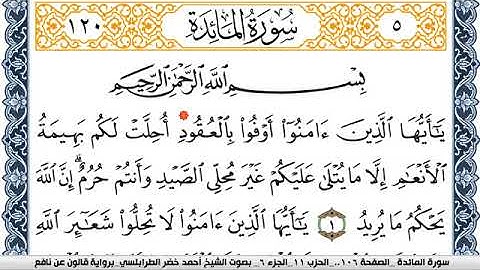 ٥ سُورَةُ المَائِدَة ١٢٠
بِسْمِ اللَّهِ الرَّحْمَٰنِ الرَّحِيمِ
يَٰٓأَيُّهَا ٱلَّذِينَ ءَامَنُوٓا۟ أَوْفُوا۟ بِالْعُقُودِ أُحِلَّتْ لَكُم بَهِيمَةُ
ٱلْأَنْعَٰمِ إِلَّا مَا يُتْلَىٰ عَلَيْكُمْ غَيْرَ مُحِلِّى ٱلصَّيْدِ وَأَنتُمْ حُرُمٌ إِنَّ ٱللَّهَ
يَحْكُمُ مَا يُرِيدُ ١ يَٰٓأَيُّهَا ٱلَّذِينَ ءَامَنُوا۟ لَا تُحِلُّوا۟ شَعَٰٓئِرَ ٱللَّهِ
سورة المائدة _الصفحة ١٠٦.._ الحزب ١١_الجزء ٦_ بصوت الشيخ أحمد خضر الطرابلسي_برواية قالون عن نافع